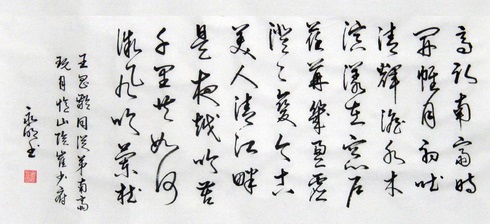 高卧南齋時
開帷月初吐
清輝澹水木
演漾在窗户
荏苒幾盈虚
澄々變今古
美人清江畔
是夜越吟苦
千里共如何
微風吹蘭杜
王昌齡同從弟南齋
玩月憶山陰崔少府